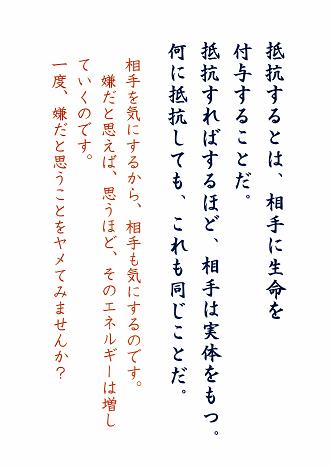 抵抗するとは、相手に生命を
付与することだ。
抵抗すればするほど、相手は実体をもつ。
何に抵抗しても、これも同じことだ。
相手を気にするから、相手も気にするのです。
嫌だと思えば、思うほど、そのエネルギーは増し
ていくのです。
一度、嫌だと思うことをヤメてみませんか？